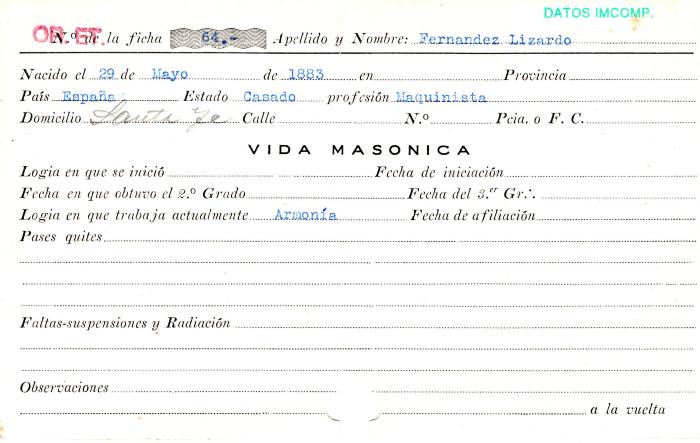 DATOS IMCOMP.
OR. ET.
N.º de la ficha 64.- Apellido y Nombre: Fernandez Lizardo
Nacido el 29 de Mayo de 1883 en Provincia
País España Estado Casado profesión Maquinista
Domicilio Santa Fe Calle N.º Pcia. o F. C.
VIDA MASONICA
Logia en que se inició Fecha de iniciación
Fecha en que obtuvo el 2.º Grado Fecha del 3.er Gr∴
Logia en que trabaja actualmente Armonía Fecha de afiliación
Pases quites
Faltas-suspensiones y Radiación
Observaciones
a la vuelta